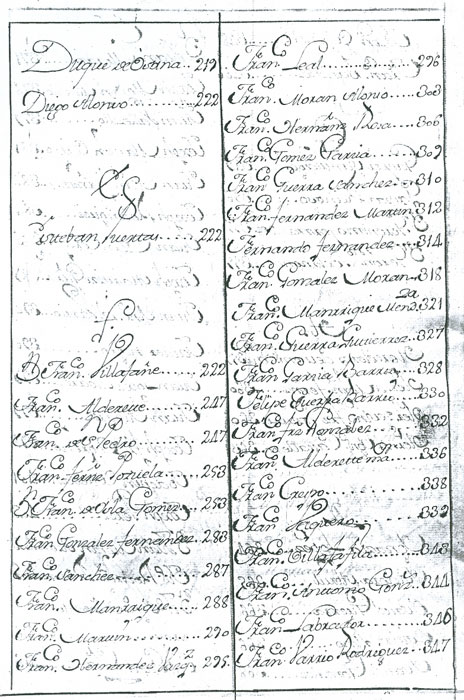 Duque de Osuna..219
Diego Alonso...222
E
Esteban Huertas.....222
f
D Fran.co Villafañe.....222
Fran.co Alderete.....247
Fran.co de S. Pedro.....247
Fran.co ferñz 253
D Fran.co de Gomez..253
Fran.co Gonzalez fernandez.283
Fran.co Sanchez.....287
Fran.co Manrrique....288
Fran.co Martin......290
Fran.co Hernandez 295
Fran.co Leal............296
Fran.co Moran Alonso....303
Fran.co Hernanz Rosa....306
Fran.co Gomez Garcia.....309
Fran.co Guerra Sanchez....310
Fran.co fernandez Martin.312
Fernando fernandez.....314
Fran.co Gonzalez Moran..318
Fran.co Manrrique Mend.za.321
Fran.co Guerra Gutierrez..327
Fran.co Garcia Barrio....328
Felipe Guerra Barrio....330
Fran.co frz 332
Fran.co Alderette 336
Fran.co Crespo.........338
Fran.co 339
Fran.co 343
Fran.co Antonio Gonz.....344
Fran.co Labrador.....346
Fran.co Barrio Rodriguez...347